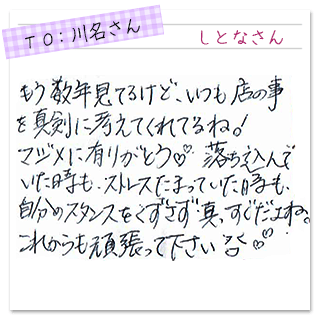 TO:川名さん
しとなさん
もう数年見てるけど、いつも店の事
を真剣に考えてくれてるね!
マジメに有りがとう♡ 落ち込んで
いた時も、ストレスたまっていた時も、
自分のスタンスをくずさず真っすぐだよね。
これからも頑張って下さい